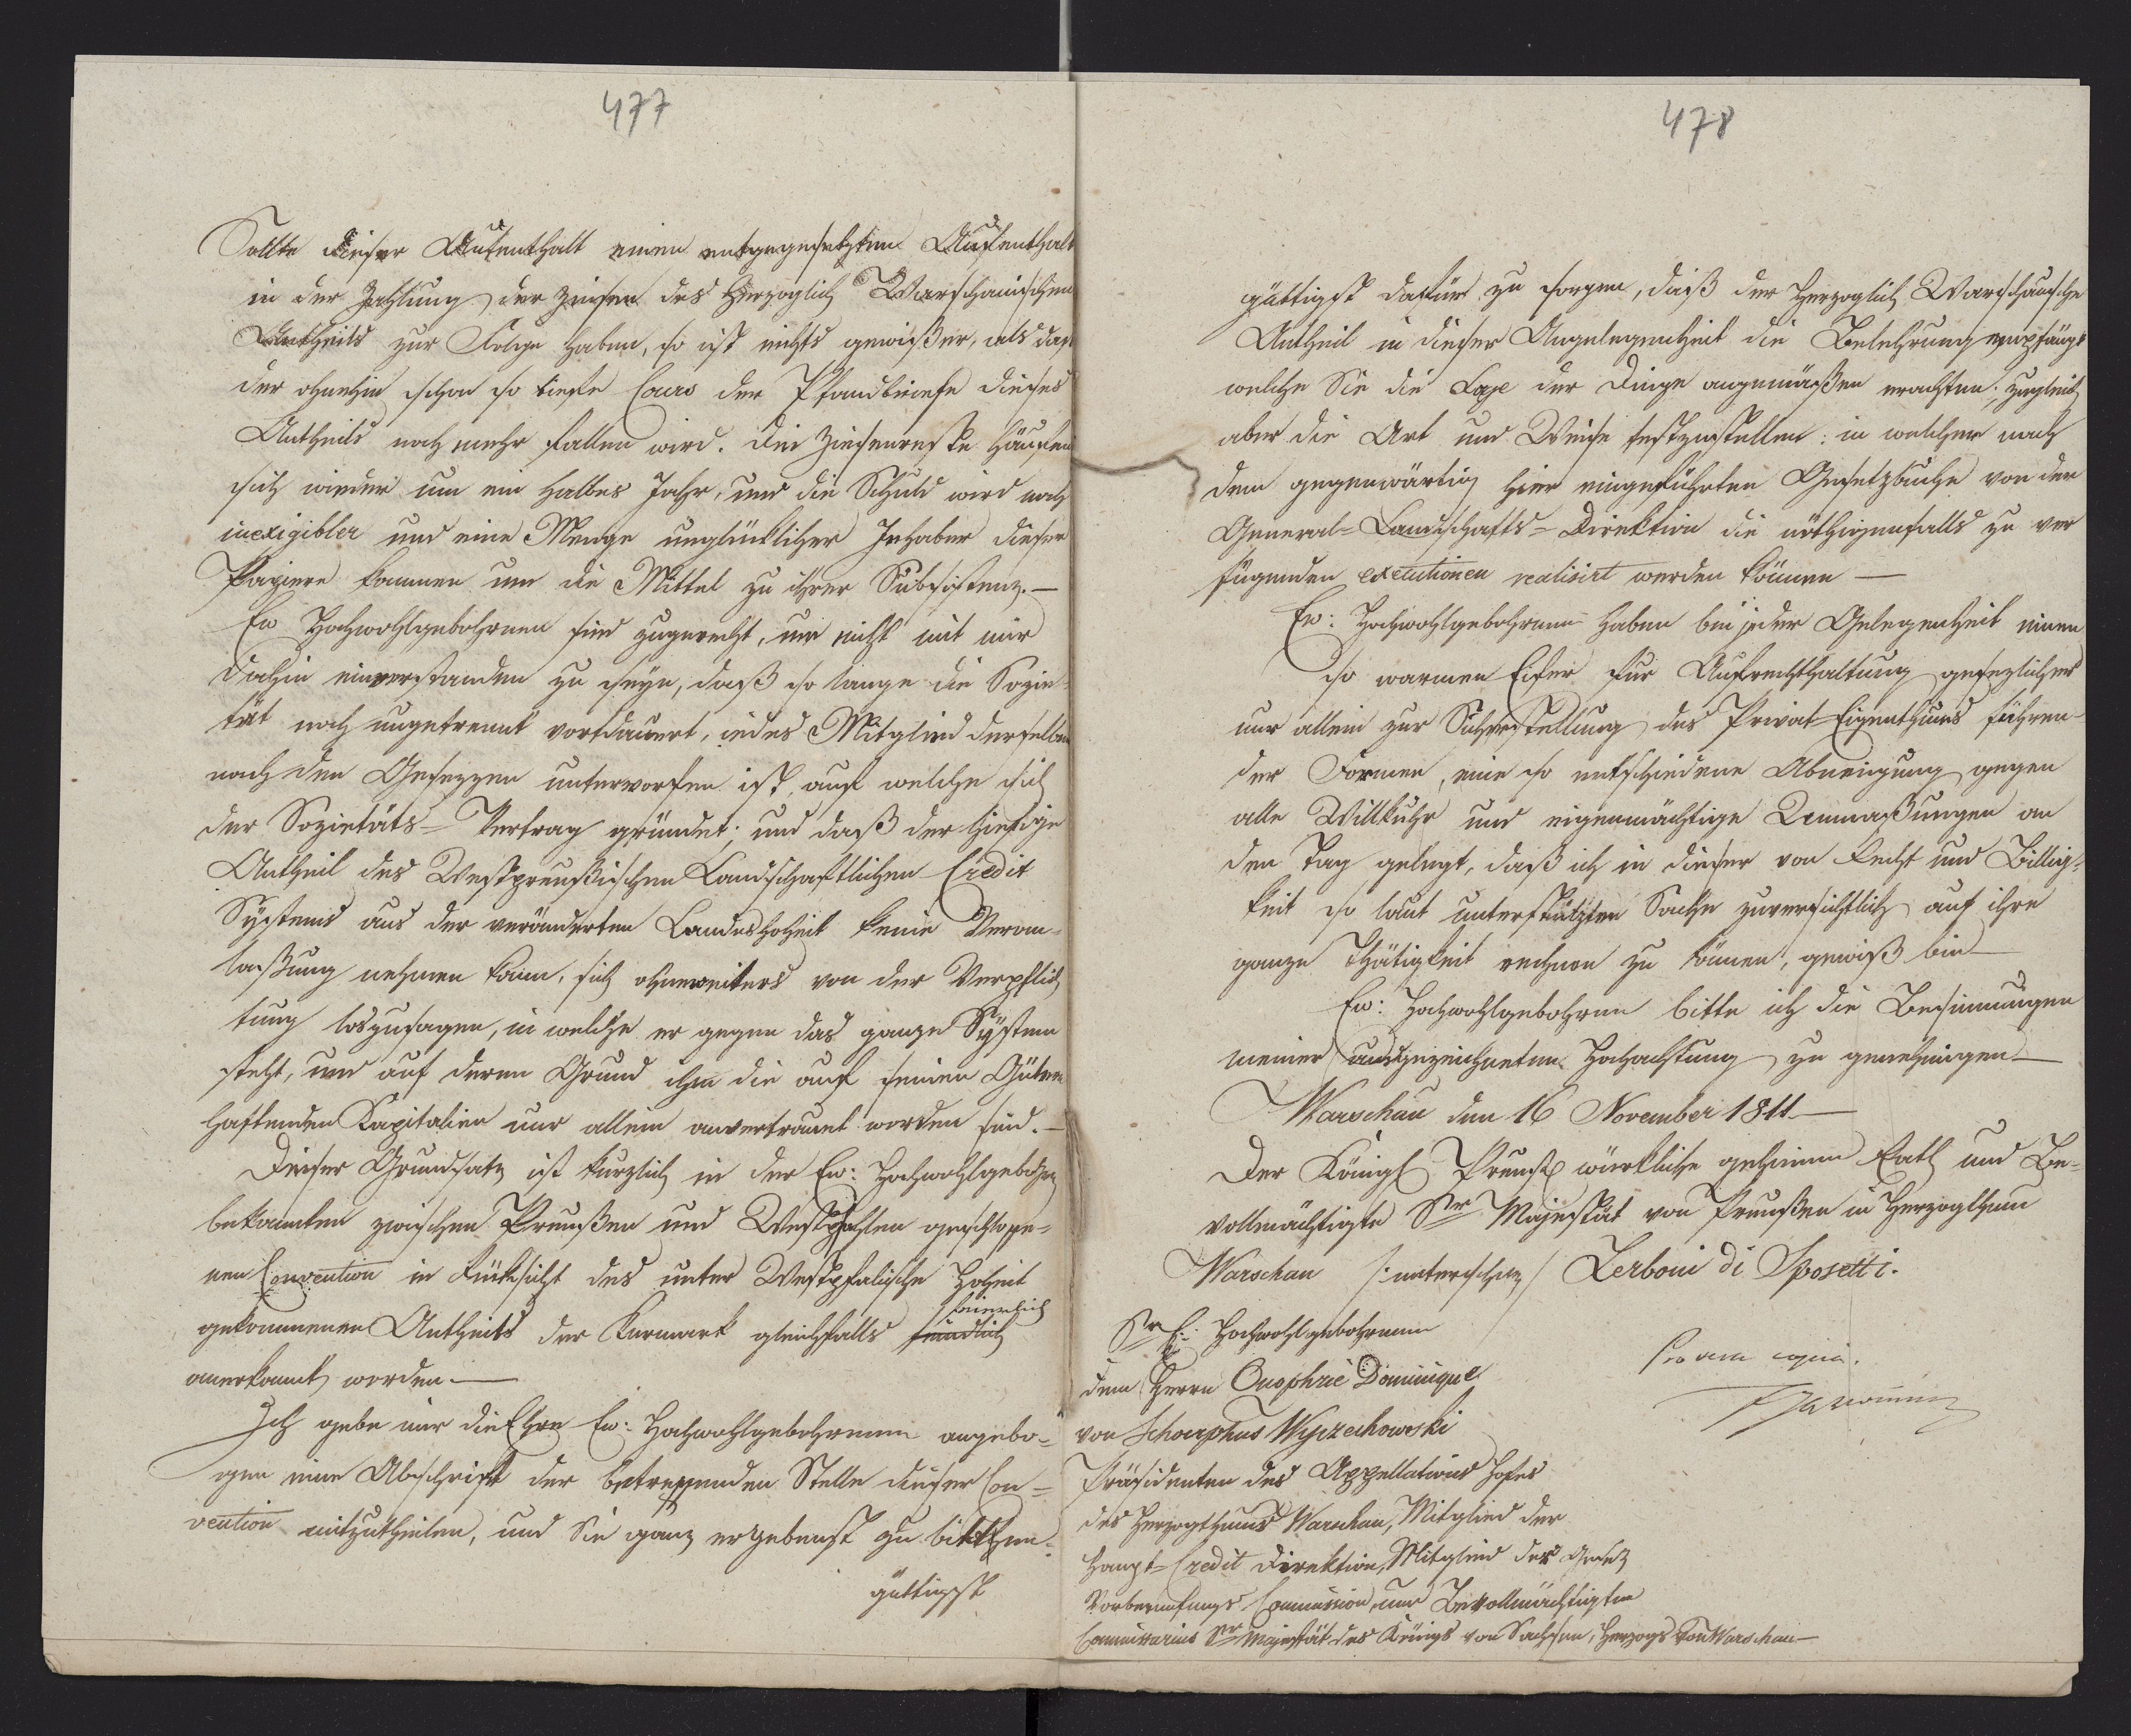 477
Sollte dieser Aufenthalt einen entgegensetzten Aufenthalt
in der Zahlung der Zinsen des Herzoglich Warschauischen
Antheils zur Folge haben, so ist nichts gewißer, als daß
der ohnehin schon so tiefe Cours der Pfandbriefe dieses
Antheils noch mehr fallen wird. Die Zinsenreste häufen
sich wieder um ein halbes Jahr, und die Schuld wird noch
inexigibler und eine Menge unglücklicher Inhaber dieser
Papiere kommen um die Mittel zu ihrer Subsistenz. —
Ew Hochwohlgebohrnen sind zu gerecht, um nicht mit mir
dahin einverstanden zu seyn, daß so lange die Sozie-
tät noch ungetrennt vortdauert, jedes Mitglied derselben
nach den Gesezzen unterworfen ist, auf welche sich
der Sozietäts-Vertrag gründet; und daß der hiesige
Antheil des Westpreußischen Landschaftlichen Credit
Systems aus der veränderten Landeshoheit keine Veran-
laßung nehmen kann, sich ohneweiters von der Verpflich
tung loszusagen, in welche er gegen das ganze System
steht, und auf deren Grund ihm die auf seinen Gütern
haftenden Kapitalien nur allein anvertrauet worden sind. —
Dieser Grundsatz ist kurzlich in der Ew: Hochwohlgebohrn
bekannten zwischen Preußen und Westphahlen geschloße-
nen Convention in Rücksicht des unter Westphalische Hoheit
feierlich
gekommenen Antheils der Kurmark gleichfalls
anerkannt worden. —
Ich gebe mir die Ehre Ew: Hochwohlgebohrnen angebo-
gen eine Abschrift der betreffenden Stelle dieser Con-
vention mitzutheilen, und Sie ganz ergebenst zu bitthen-
güttigst
478
güttigst dafür zu sorgen, daß der Herzoglich Warschausche
Antheil in dieser Angelegenheit die Belehrung empfängt
welche Sie die Lage der Dinge angemäßen erachten; zugleich
aber die Art und Weise festzustellen: in welcher nach
dem gegenwärtig hier eingeführten Gesetzbuche von der
General-Landschafts-Direktion die nöthigenfalls zu ver
fügenden executionen realisirt werden können —
Ew: Hochwohlgebohrnen haben bei jeder Gelegenheit einen
so warmen Eifer für Aufrechthaltung gesezlicher
nur allein zur Sicherstellung des Privat-Eigenthums führen-
der Formen, eine so entschiedene Abneigung gegen
alle Willkuhr und eigenmächtige Anmaßungen an
den Tag gelegt, daß ich in dieser von Recht und Billig-
keit so laut unterstützten Sache zuversichtlich auf ihre
ganze Thätigkeit rechnen zu können, gewiß bin —
Ew: Hochwohlgebohrnen bitte ich die Versicherungen
meiner ausgezeichneten Hochachtung zu genehmigen —
Warschau den 16 November 1811 —
Der Königl Preuß würkliche geheime Rath und Be-
vollmächtigte Sr Majestät von Preußen in Herzogthum
Warschau /:unterschr:/ Zerboni di Sposetti.
Sr E: Hochwohlgebohrnen
dem Herrn Onophrie Dominique
von Wyczechowski
Präsidenten des Appellations Hofes
des Herzogthums Warschau, Mitglied der
Haupt-Credit Direktion, Mitglied der Gesetz
Commission, und Bevollmächtigten
Commissarius Sr Majestät des Königs von Sachsen, Herzogs von Warschau —
Pro vera copia.